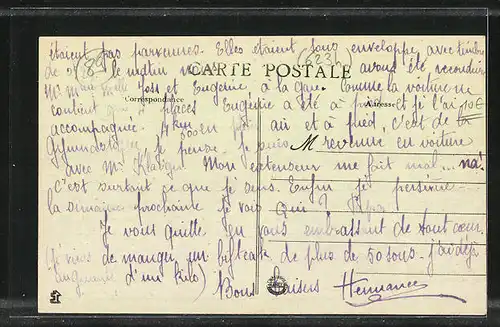 étaient pas parvenues. Elles étaient sous enveloppe avec timbre
de le matin nous avons été reconduire
CARTE POSTALE
Mr Mme Joss et Eugénie, à la gare. Comme la voiture ne
Correspondance Adresse
contient que 4 places Eugénie a été à pied et je l'ai
10€
accompagnée. 7 km 500 en air et à pied, c'est de la
Gymnastique, je pense. Je suis revenue en voiture
M
avec Mr Mon extenseur me fait mal... na!
C'est surtout ce que je sens. Enfin je
la semaine prochaine je vais Qui ?
Je vous quitte en vous embrassant de tout cœur.
(Je viens de manger un bifteack de plus de 50 sous. j'ai déjà
augmenté d'un kilo) Bons Baisers Hermance